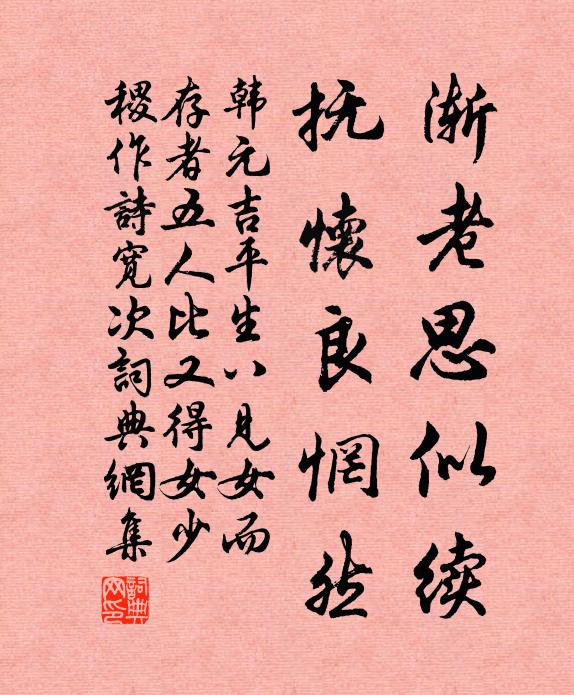 渐老思似续
抚懷良惘然
韩元吉平生八見女而
存者五人比又得女少
稷作詩寛次詞典網集
詞典網印